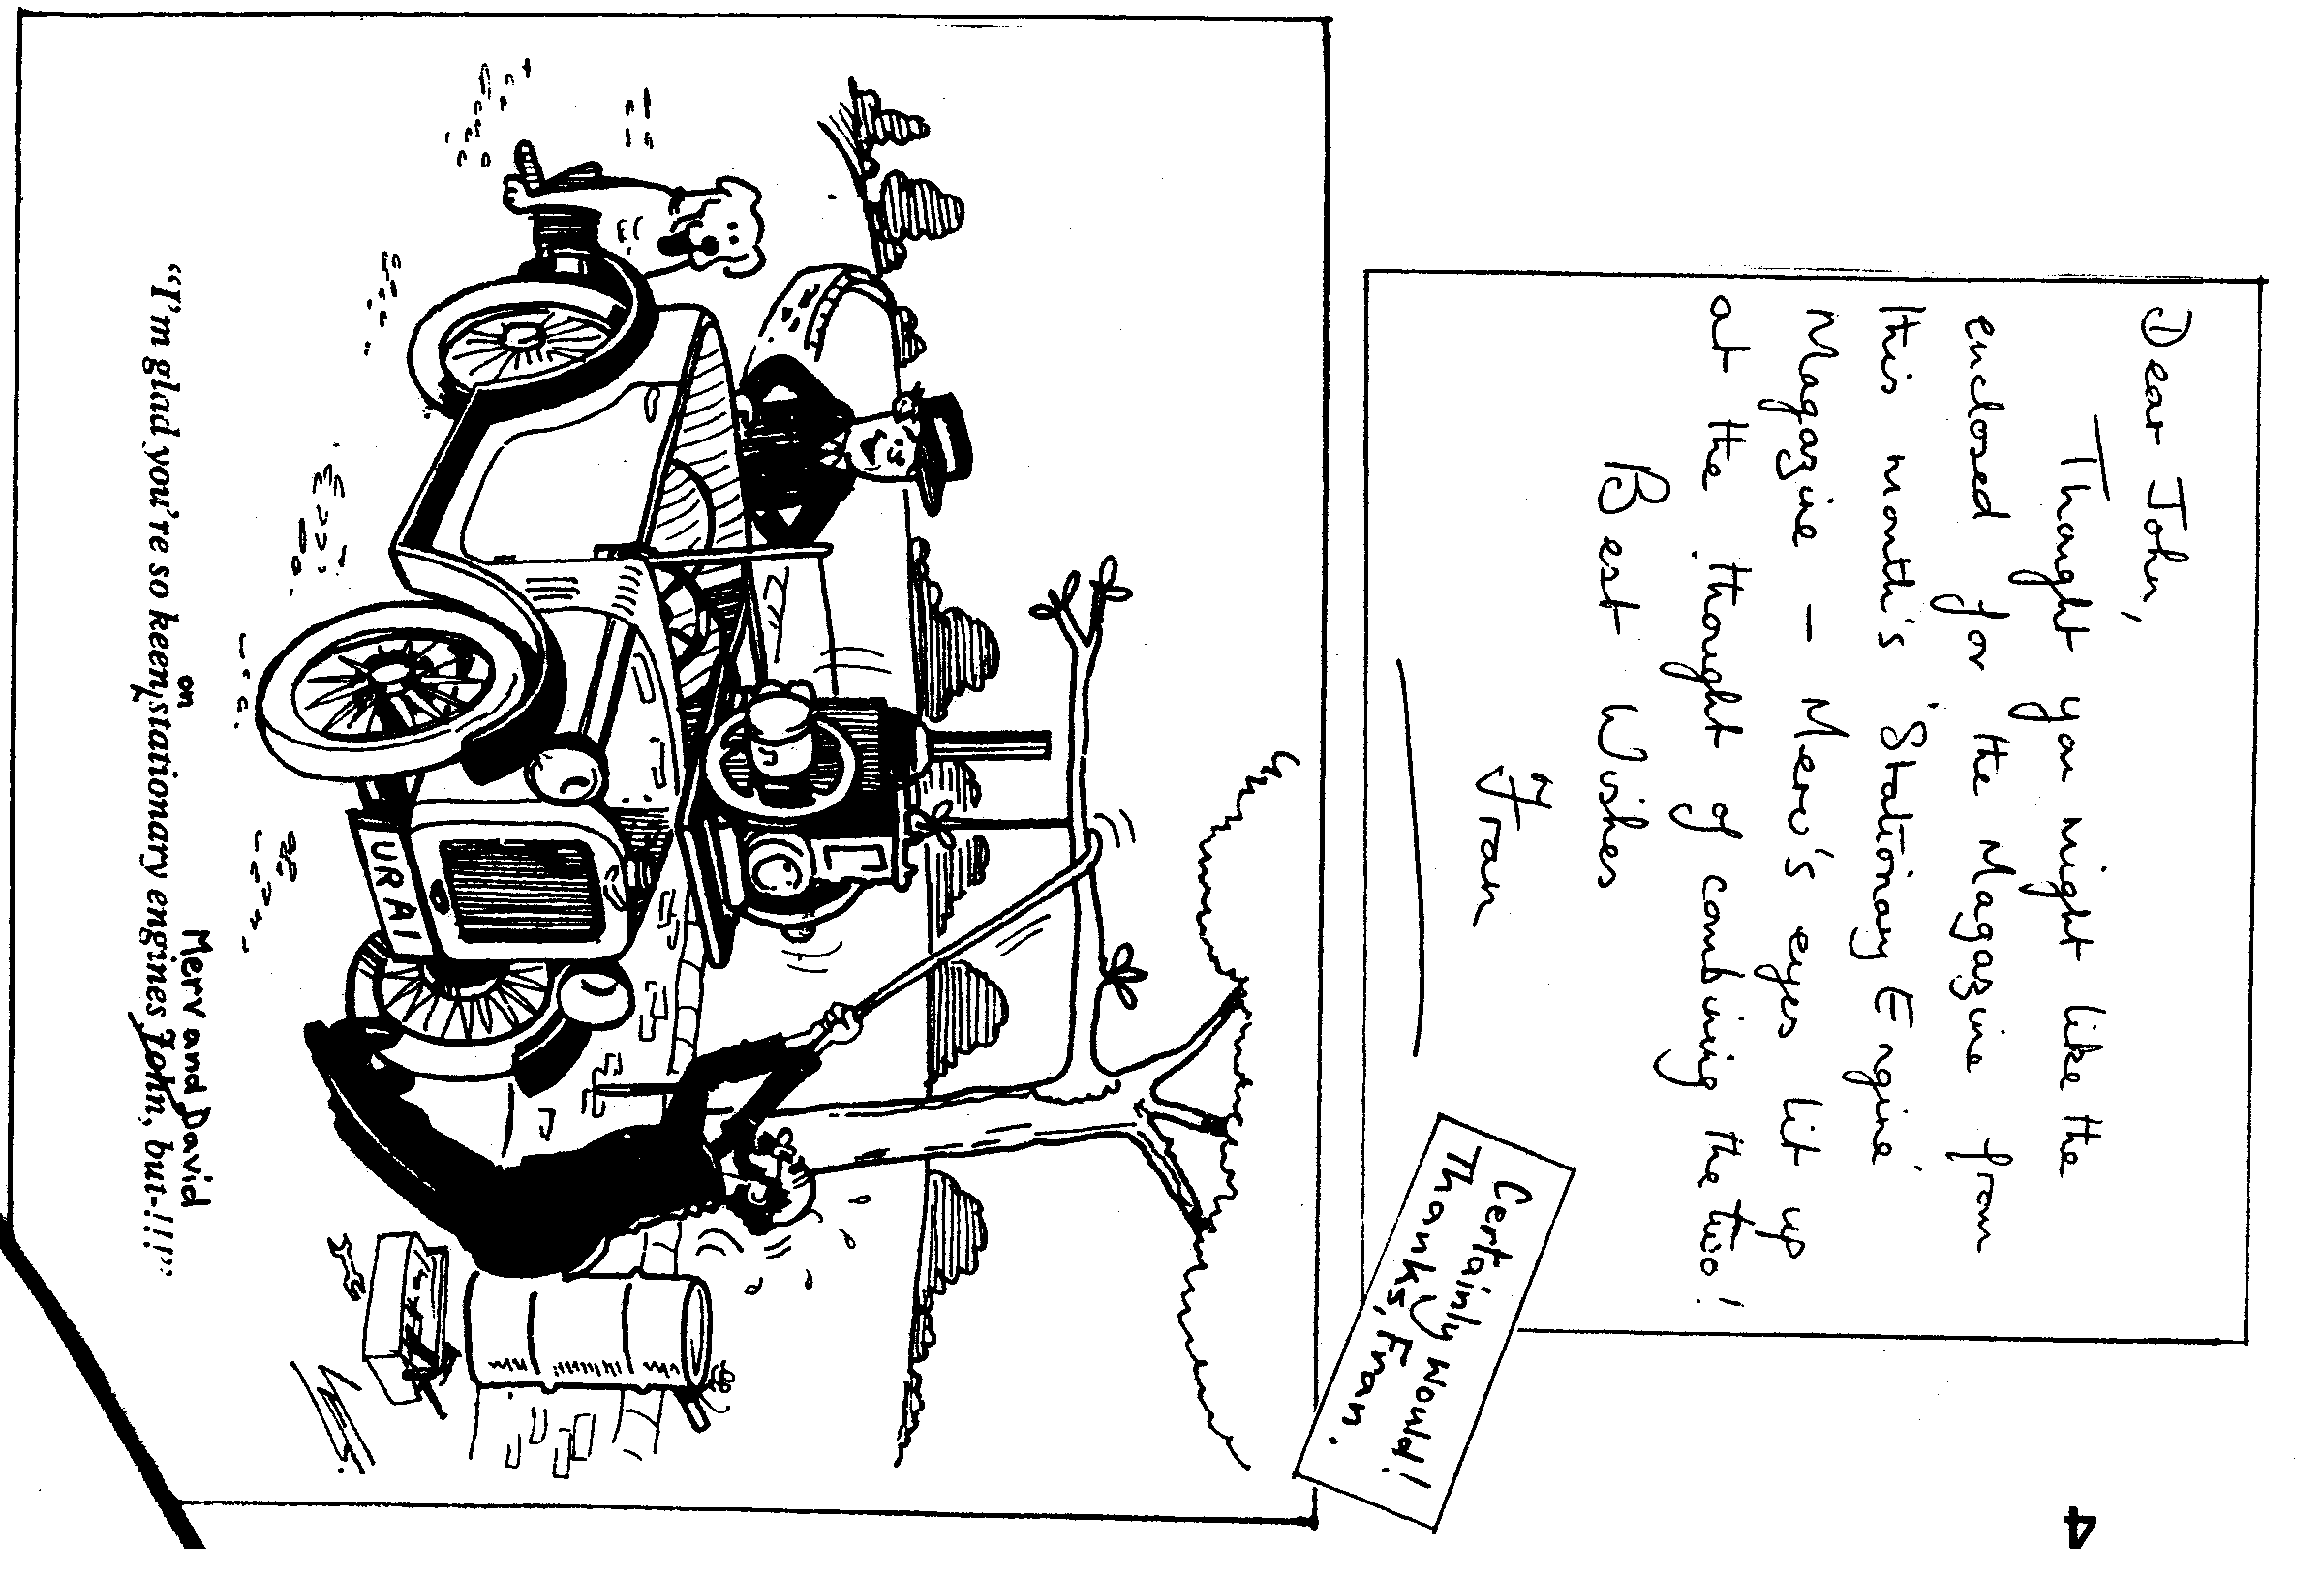 4
Dear John,
Thought you might like the
enclosed for the Magazine from
this month's 'Stationary Engine'
Magazine – Merv's eyes lit up
at the thought of combining the two!
Best Wishes
Fran
Certainly Would!
Thanks, Fran.
UR A1
on Merv and David
"I'm glad you're so keen stationary engines John, but-!!!"